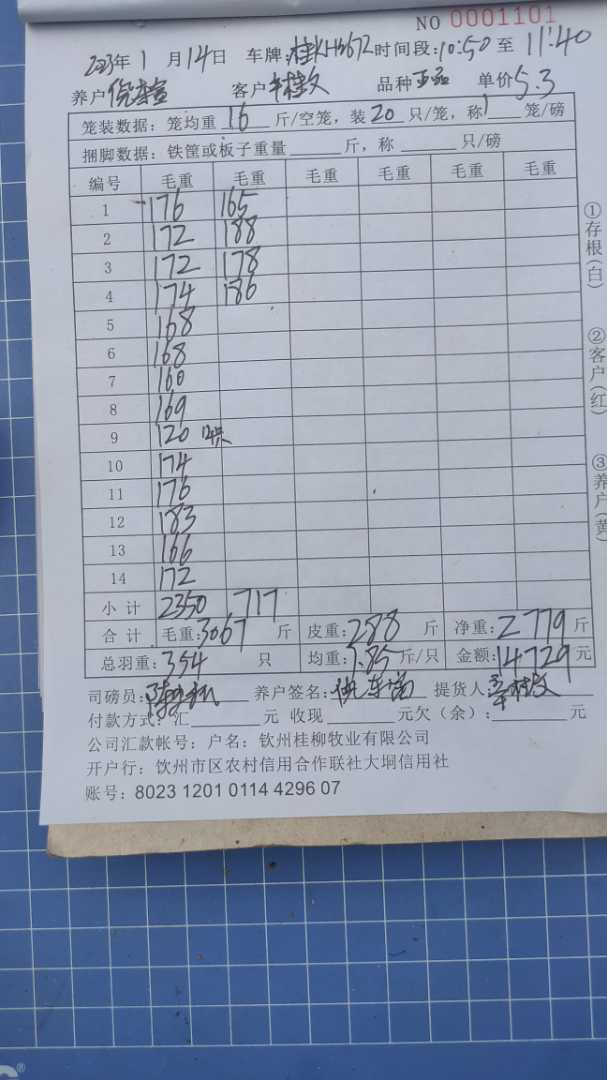 NO 0001101
2023年1月14日 车牌:桂KH3672 时间段:10:50至11:40
养户 客户 品种 单价5.3
笼装数据:笼均重16斤/空笼,装20只/笼,称1笼/磅
捆脚数据:铁筐或板子重量 斤,称 只/磅
编号 毛重 毛重 毛重 毛重 毛重 毛重
1 176 165
2 172 188
3 172 178
4 174 186
5 168
6 168
7 160
8 169
9 120
10 174
11 176
12 183
13 166
14 172
小计 2350 717
合计 毛重:3067斤 皮重:288斤 净重:2779斤
总羽重:354只 均重:7.85斤/只 金额:14729元
司磅员: 养户签名: 提货人:
付款方式:汇 元 收现 元欠(余): 元
公司汇款帐号:户名:钦州桂柳牧业有限公司
开户行:钦州市区农村信用合作联社大垌信用社
账号:8023 1201 0114 4296 07
①存根(白)
②客户(红)
③养户(黄)